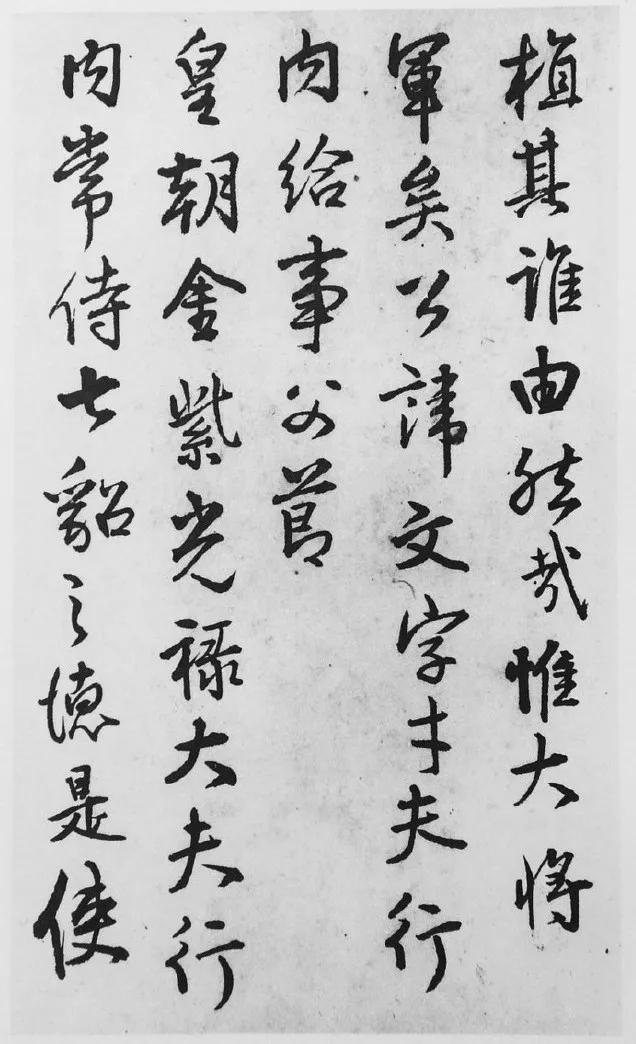 植其誰由然哉惟大將
軍矣公諱文字才夫行
内給事父節
皇朝金紫光祿大夫行
内常侍七貂之德是使